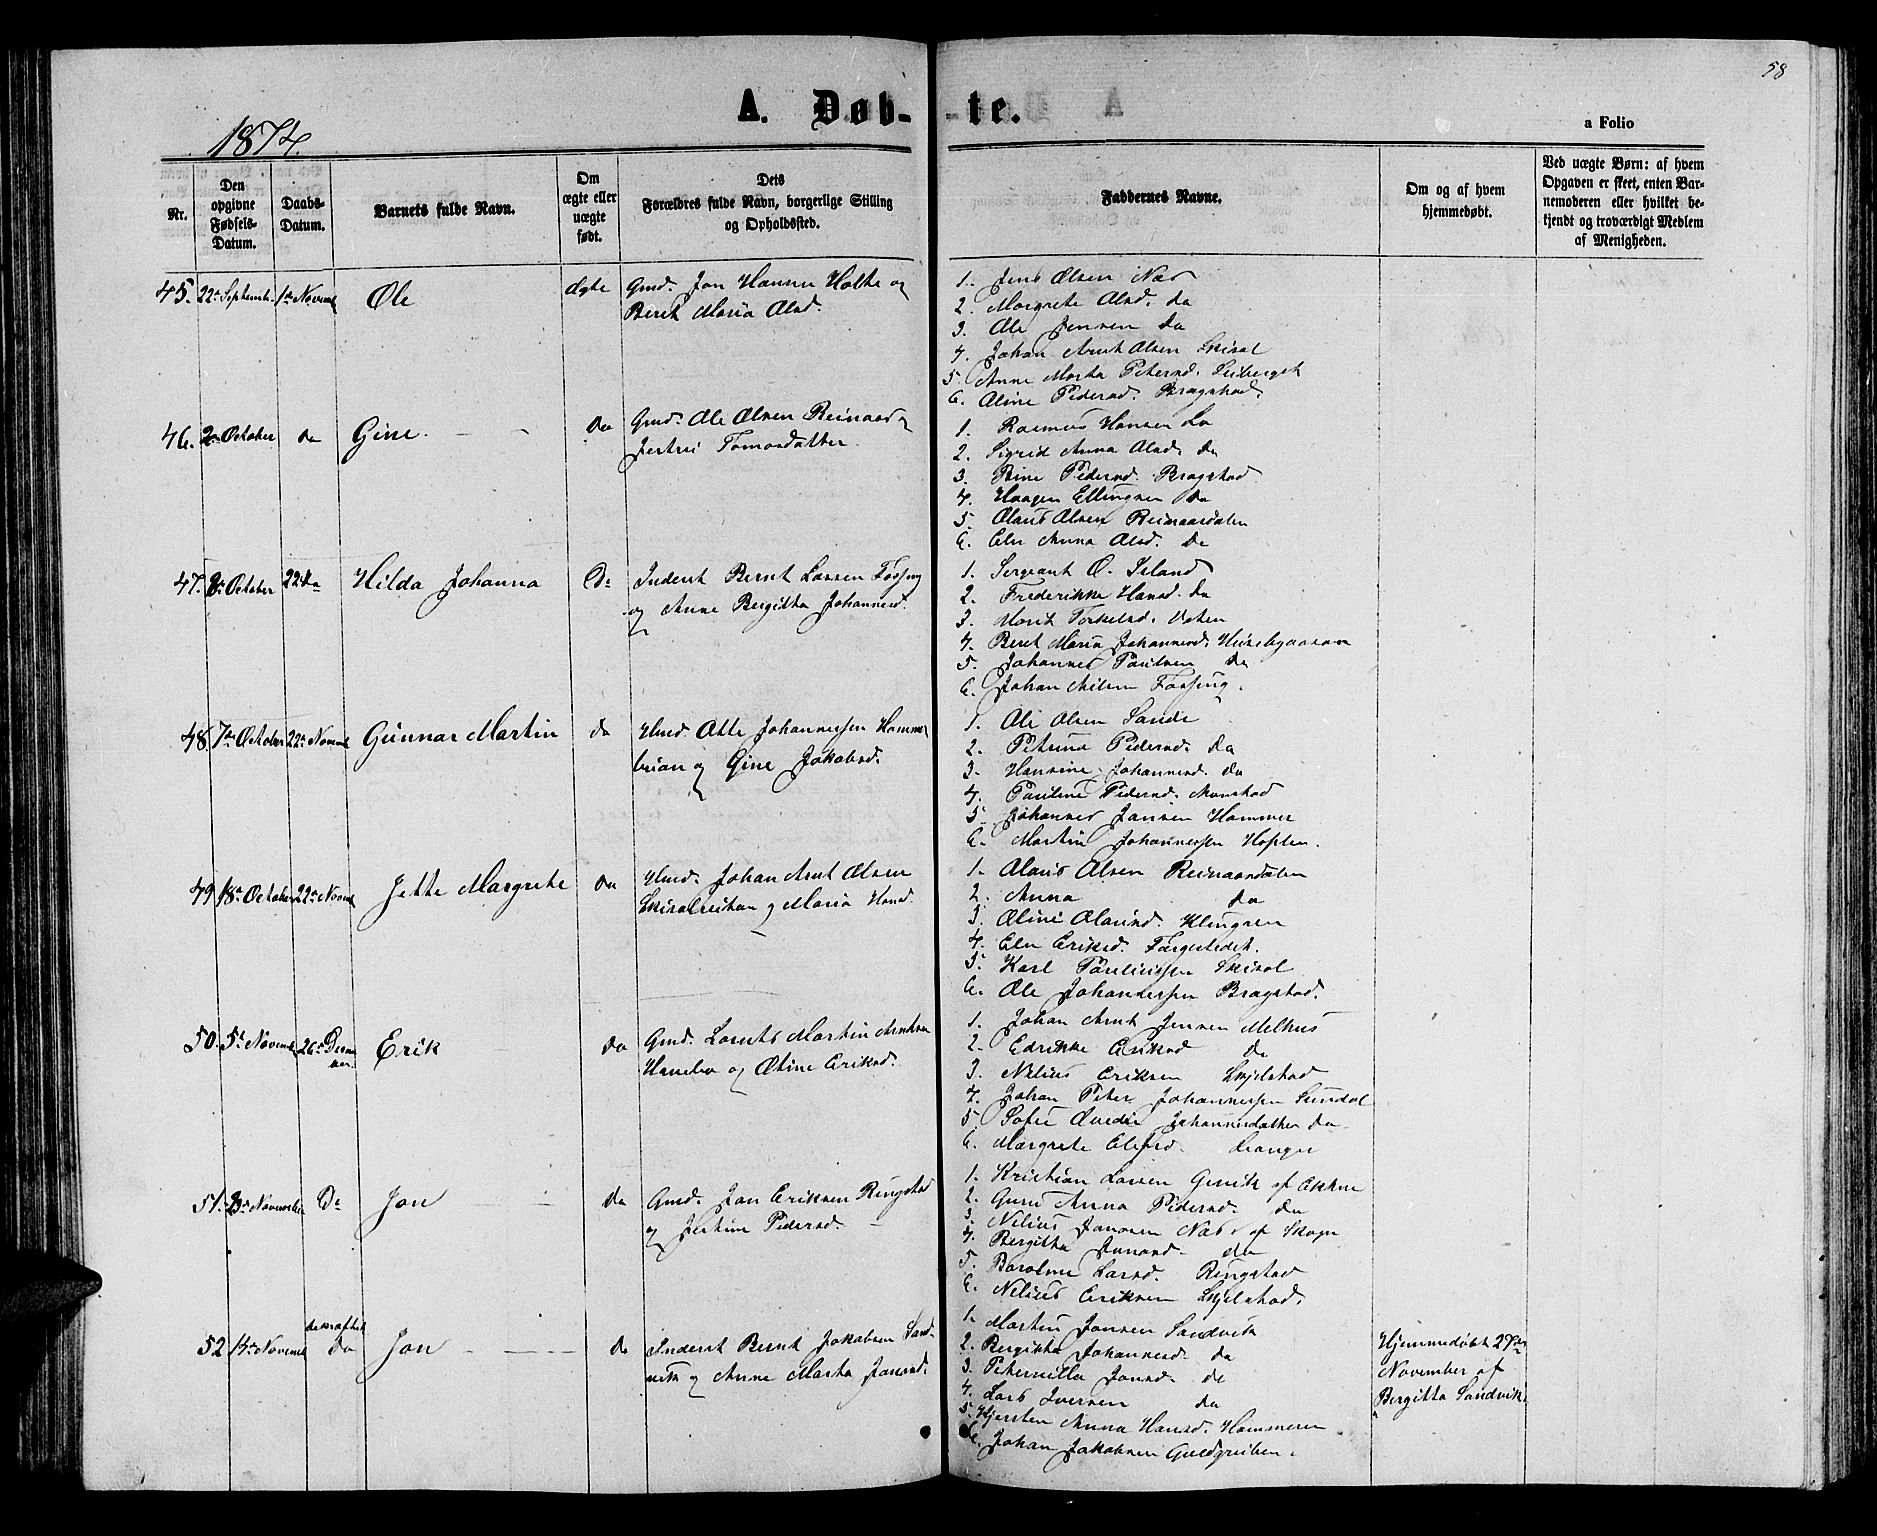 58
A. Døb-te.
a Folio
1874.
Nr.
Den opgivne Fødsels-Datum.
Daabs-Datum.
Barnets fulde Navn.
Om ægte eller uægte født.
Dets Forældres fulde Navn, borgerlige Stilling og Opholdssted.
Faddernes Navne.
Om og af hvem hjemmedøbt.
Ved uægte Børn: af hvem
Opgaven er skeet, enten Bar-
nemoderen eller hvilket be-
kjendt og troværdigt Medlem
af Menigheden.
45. 22de Septemb. 1ste Novemb Ole ægte Gmd. Jon Hansen Holte og
Beret Maria Olsd.
1. Jens Olsen Næs
2. Margrete Olsd. do
3. Ole Jensen do
4. Johan Arnt Olsen
5. Anne Marta Petersd.
6. Oline Pedersd. Bragstad.
46. 2den October do Gine do Gmd. Ole Olsen Reinaas og
Jertrü Tomasdatter.
1. Rasmus Hansen do
2. Sigrid Anna Olsd. do
3. Pedersd. Bragstad
4. Haagen Ellingsen do
5. Olaus Olsen Reinaasdalen
6. Elen Anna Olsd. do
47. October 22de do Hilda Johanna Do Inderst Bernt Larsen
og Anne Bergitta Johannesd.
1. Sergeant O. Island
2. Frederikke Hansd. do
3. Marit Torkelsd. Vaten
4. Beret Maria Johannesd.
5. Johannes Paulsen do
6. Johan Nilsen
48 7de October 22de Novemb Gunnar Martin do Hmd Otte Johannessen Hammer
og Gine Jakobsd.
1. Ole Olsen Sande
2. Petrina Pedersd. do
3. Hansine Johannesd. do
4. Pauline Pedersd.
5. Johannes Jansen Hammer
6. Martin Johannessen Hoplen.
49 18de October 22de Novemb Jette Margrete do Hmd. Johan Arnt Olsen
og Maria Hansd.
1. Olaus Olsen Reinaasdalen
2. Anna do
3. Oline Olausd. Klingen
4. Elen Eriksd. Færgestedet.
5. Karl Paulinssen
6. Ole Johannessen Bragstad.
50. 5te Novemb 26de Decem
ber. Erik do Gmd. Lorents Martin Arntsen
og Oline Eriksd.
1. Johan Arnt Jensen Melhus
2. Edrikke Eriksd do
3. Nelius Eriksen Skjelstad
4. Johan Peter Johannessen Sundal
5. Sofie Johannesdatter do
6. Margrete
51. November Do Jon do Gmd. Jon Eriksen Ringstad
og Jertine Pedersd.
1. Kristian Larsen af Ekkne
2. Guru Anna Pedersd. do
3. Nelius Jansen Næs af Skogn
4. Bergitta Jonasd. do
5. Larsd. Ringstad
6. Nelius Eriksen Skjelstad.
52 14de Novemb bekræftet
do Jon do Inderst Bernt Jakobsen Sand-
vik og Anne Marta Jonasd.
1. Martin Jansen Sandvik
2. Bergitta Johannesd. do
3. Peternilla Jonsd. do
4. Lars Iversen do
5. Kjersten Anna Hansd. Hammeren
6. Johan Jakobsen Guldgruben.
Hjemmedøbt 27de
November af
Bergitta Sandvik.